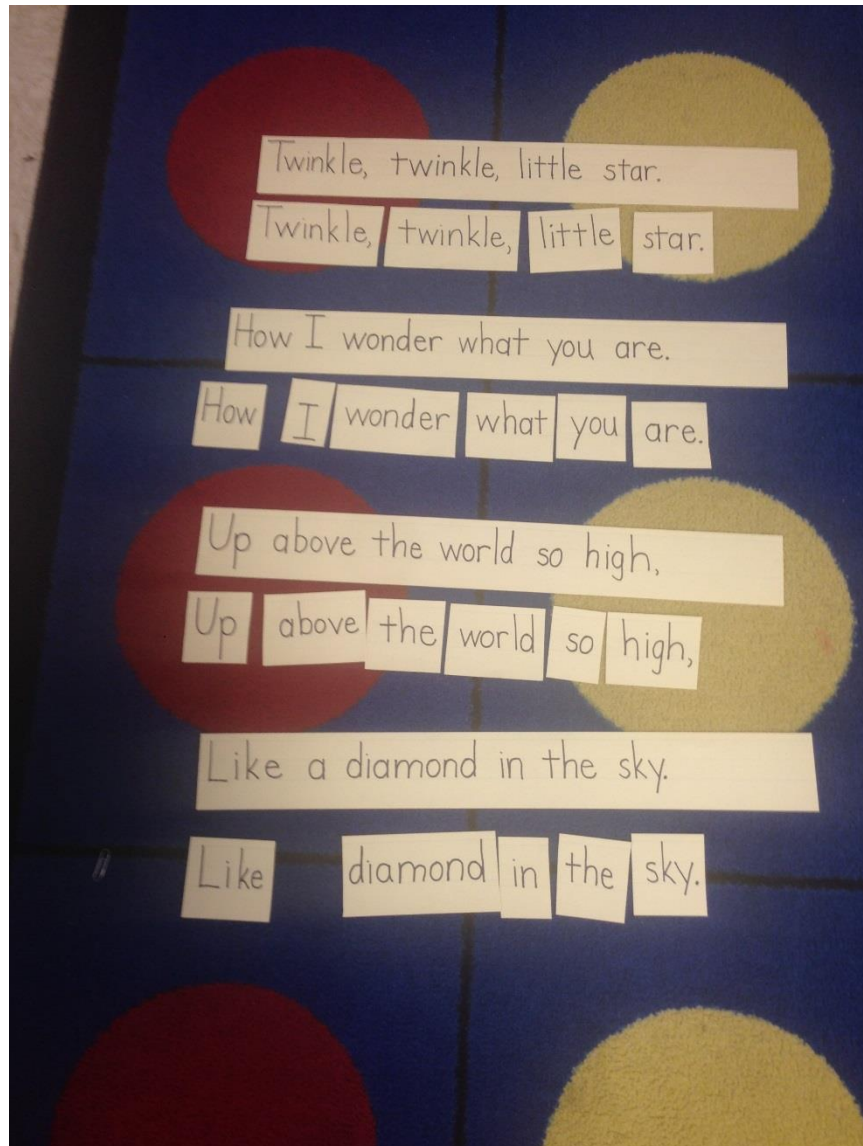 Twinkle, twinkle, little star.
Twinkle, twinkle, little star.
How I wonder what you are.
How I wonder what you are.
Up above the world so high,
Up above the world so high,
Like a diamond in the sky.
Like diamond in the sky.